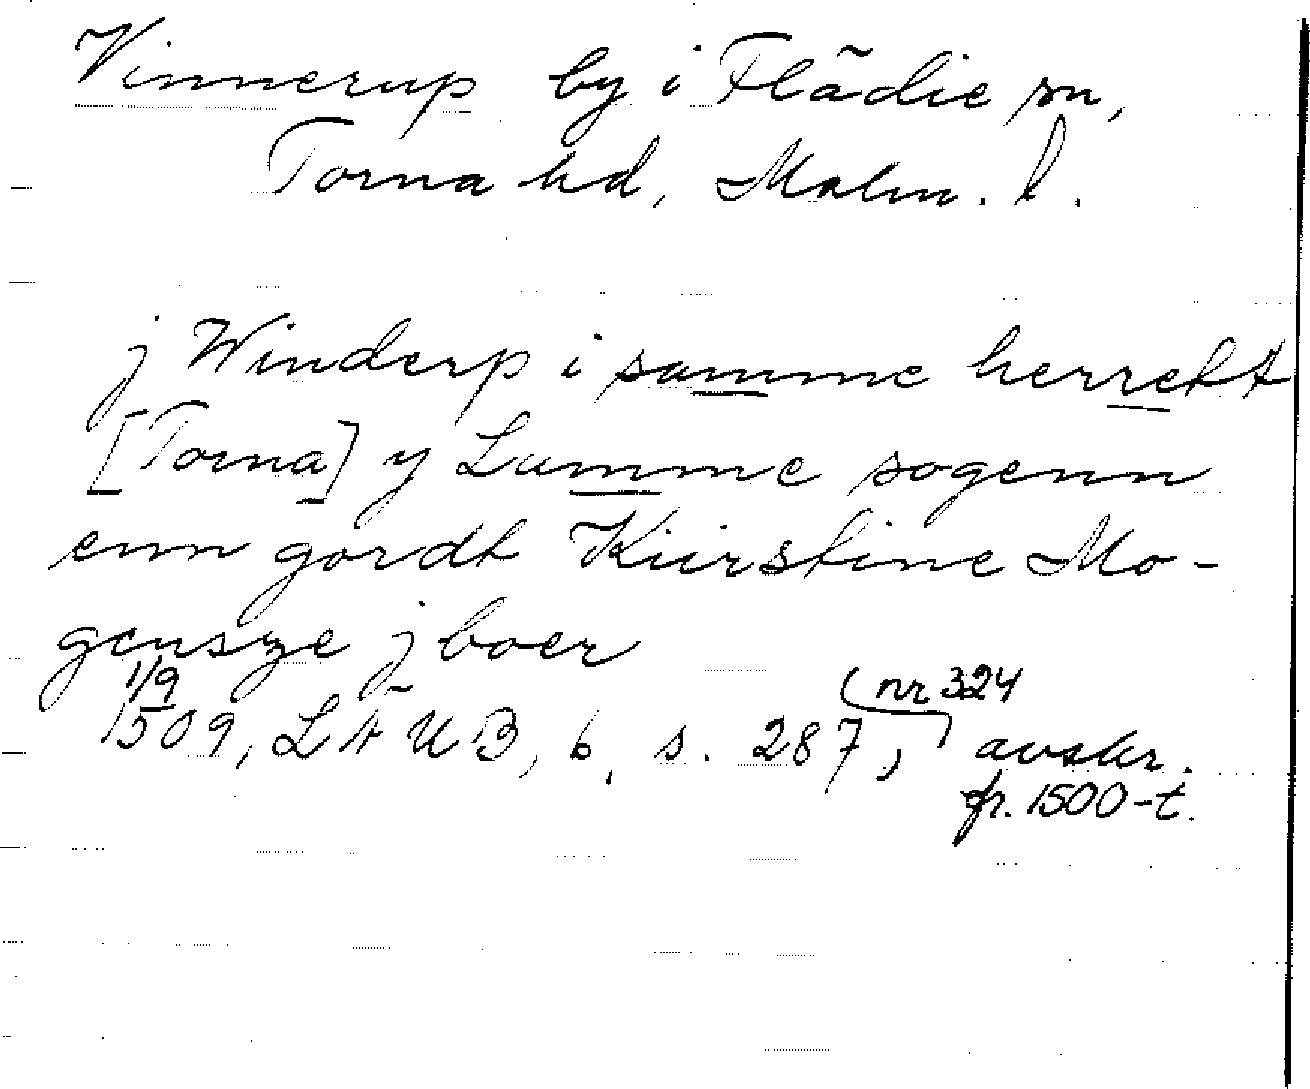 Vinnerup by i Flädie sn,
Torna hd, Malm. l.
j Winderp i samme herrett
[Torna] y Lumme sogenn
enn gordt Kiirstine Mo-
gensze j boer
1/9
1509, LÄUB, 6, s. 287, (nr 324) avskr.
fr. 1500-t.